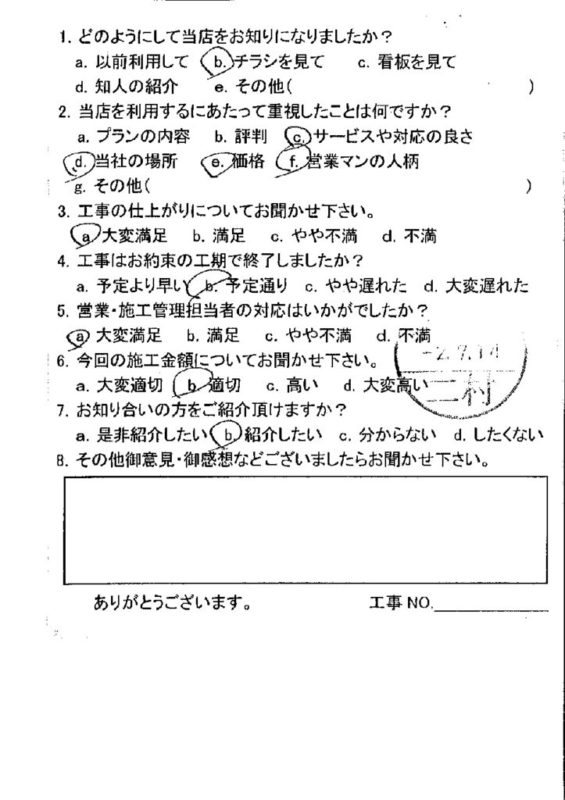 1. どのようにして当店をお知りになりましたか？
a. 以前利用して b. チラシを見て c. 看板を見て
d. 知人の紹介 e. その他( )
2. 当店を利用するにあたって重視したことは何ですか？
a. プランの内容 b. 評判 c. サービスや対応の良さ
d. 当社の場所 e. 価格 f. 営業マンの人柄
g. その他( )
3. 工事の仕上がりについてお聞かせ下さい。
a 大変満足 b. 満足 c. やや不満 d. 不満
4. 工事はお約束の工期で終了しましたか？
a. 予定より早い b. 予定通り c. やや遅れた d. 大変遅れた
5. 営業・施工管理担当者の対応はいかがでしたか？
a 大変満足 b. 満足 c. やや不満 d. 不満
-2.7.14
6. 今回の施工金額についてお聞かせ下さい。
a. 大変適切 b. 適切 c. 高い d. 大変高い
二村
7. お知り合いの方をご紹介頂けますか？
a. 是非紹介したい b. 紹介したい c. 分からない d. したくない
8. その他御意見・御感想などございましたらお聞かせ下さい。
ありがとうございます。 工事 NO.